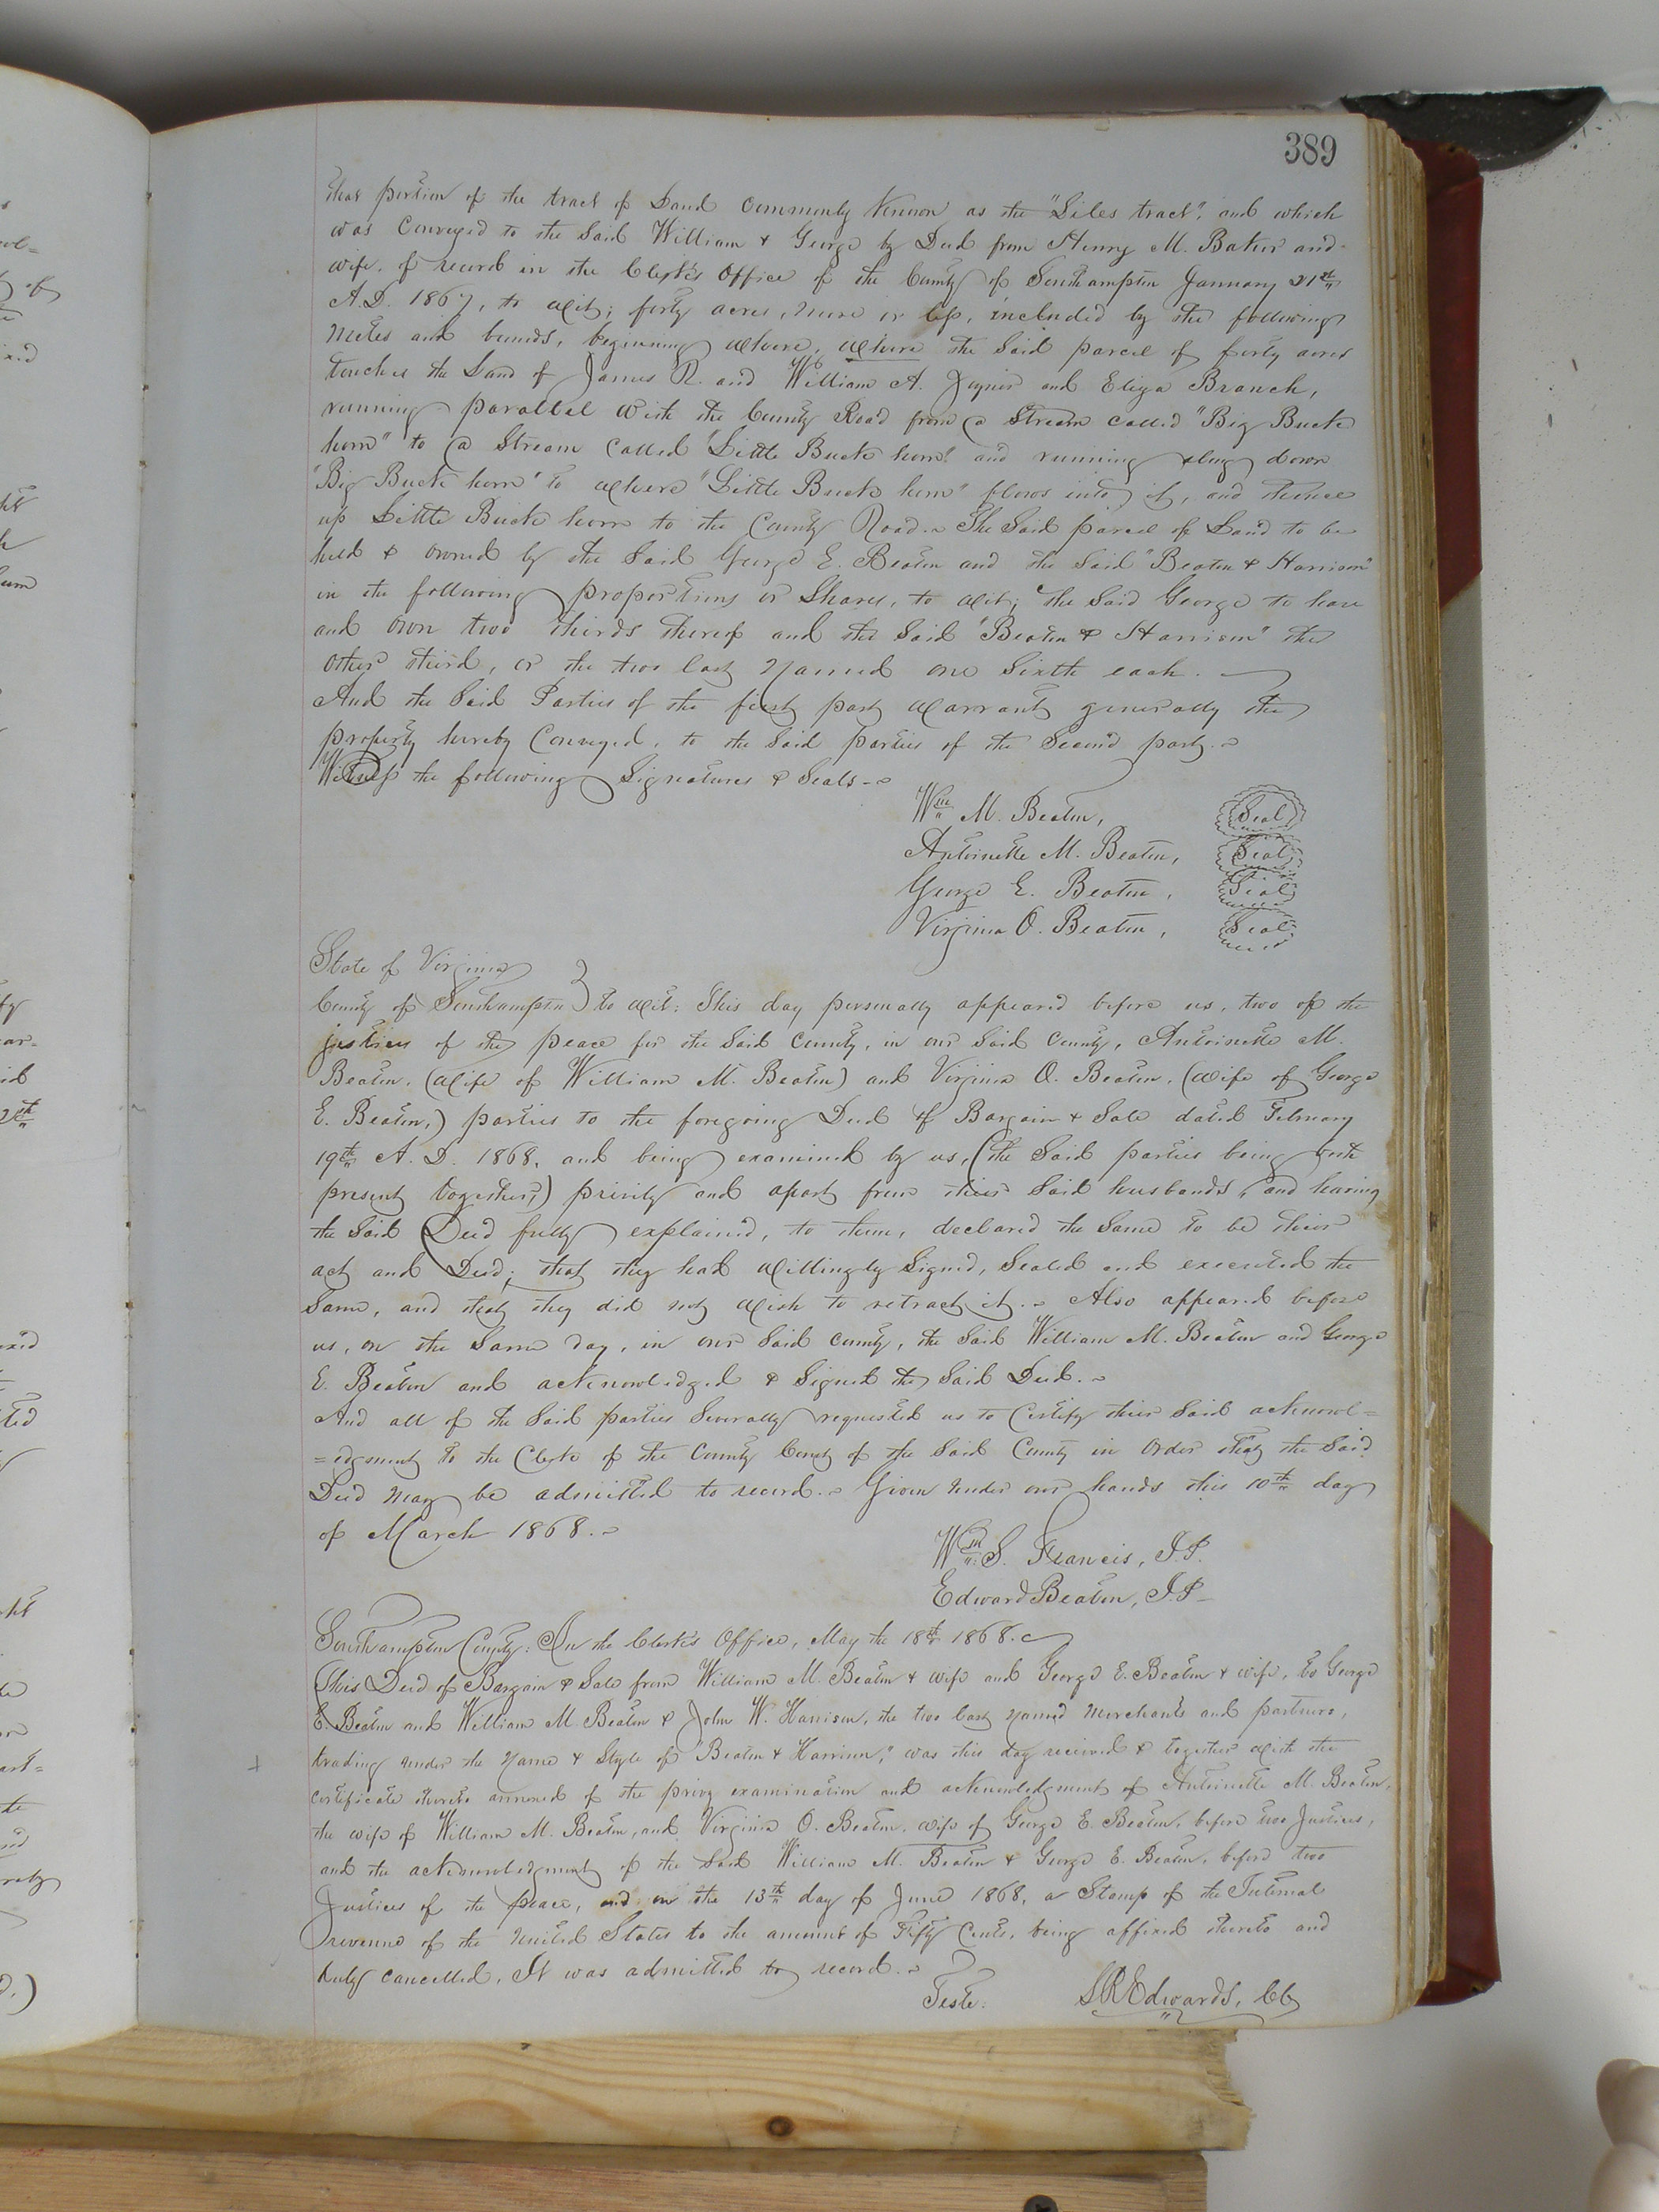 389
that portion of the tract of Land Commonly Known as the "Liles tract", and which
was Conveyed to the Said William & George by Deed from Henry M. Bators and
wife, of record in the Clerk's Office of the County of Southampton January 21st
A.D. 1867, to wit; forty acres, more or less, included by the following
metes and bounds, beginning where, where the Said parcel of forty acres
touches the Land of James R. and William A. Joyner and Eliza Branch,
running parallel with the County Road from a Stream called "Big Buck
horn" to a Stream Called "Little Buck horn" and running along down
"Big Buck horn" to where "Little Buck horn" flows into it, and thence
up Little Buck horn to the County Road. The Said parcel of Land to be
held & owned by the Said George E. Beaton and the Said "Beaton & Harrison"
in the following proportions or Shares, to wit; the Said George to have
and own two thirds thereof and the Said "Beaton & Harrison" the
other third, or the two last named one Sixth each.
And the Said Parties of the first part warrant generally the
property hereby Conveyed, to the Said parties of the Second part.
Witness the following Signatures & Seals
Wm M. Beaton, Seal
Antoinette M. Beaton, Seal
George E. Beaton, Seal
Virginia O. Beaton, Seal
State of Virginia
County of Southampton } to wit: This day personally appeared before us, two of the
justices of the peace for the Said County, in our Said County, Antoinette M.
Beaton, (wife of William M. Beaton) and Virginia O. Beaton, (wife of George
E. Beaton,) parties to the foregoing Deed of Bargain & Sale dated February
19th A.D. 1868, and being examined by us, (the Said parties being both
present together,) privily and apart from their Said husbands, and having
the Said Deed fully explained, to them, declared the Same to be their
act and Deed; that they had willingly Signed, Sealed and executed the
Same, and that they did not wish to retract it. Also appeared before
us, on the Same day, in our Said county, the Said William M. Beaton and George
E. Beaton and acknowledged & Signed the Said Deed.
And all of the Said parties Severally requested us to Certify their Said acknowl=
=edgment to the Clerk of the County Court of the Said County in order that the Said
Deed may be admitted to record. Given under our hands this 10th day
of March 1868.
Wm S. Francis, J.P.
Edward Beaton, J.P.
Southampton County: In the Clerk's Office, May the 18th 1868.
This Deed of Bargain & Sale from William M. Beaton & wife and George E. Beaton & wife, to George
E. Beaton and William M. Beaton & John W. Harrison, the two last named Merchants and partners,
trading under the Name & Style of "Beaton & Harrison," was this day received & together with the
certificate thereto annexed of the privy examination and acknowledgment of Antoinette M. Beaton,
the wife of William M. Beaton, and Virginia O. Beaton, wife of George E. Beaton, before two Justices,
and the acknowledgment of the Said William M. Beaton & George E. Beaton, before two
Justices of the peace, and on the 13th day of June 1868, a Stamp of the Internal
revenue of the United States to the amount of Fifty Cents, being affixed thereto and
duly cancelled, It was admitted to record.
Teste: L R Edwards, CC